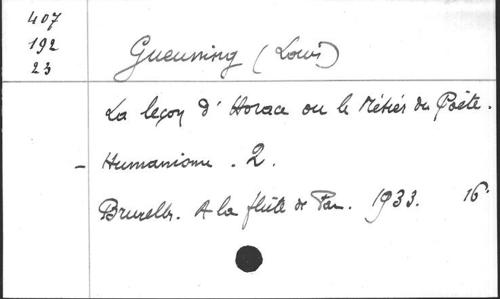 407
192
23
Gueuning (Louis)
La leçon d'Horace ou le Métier du Poète.
- Humanisme. 2.
Bruxelles. A la flûte de Pan. 1933. 16°